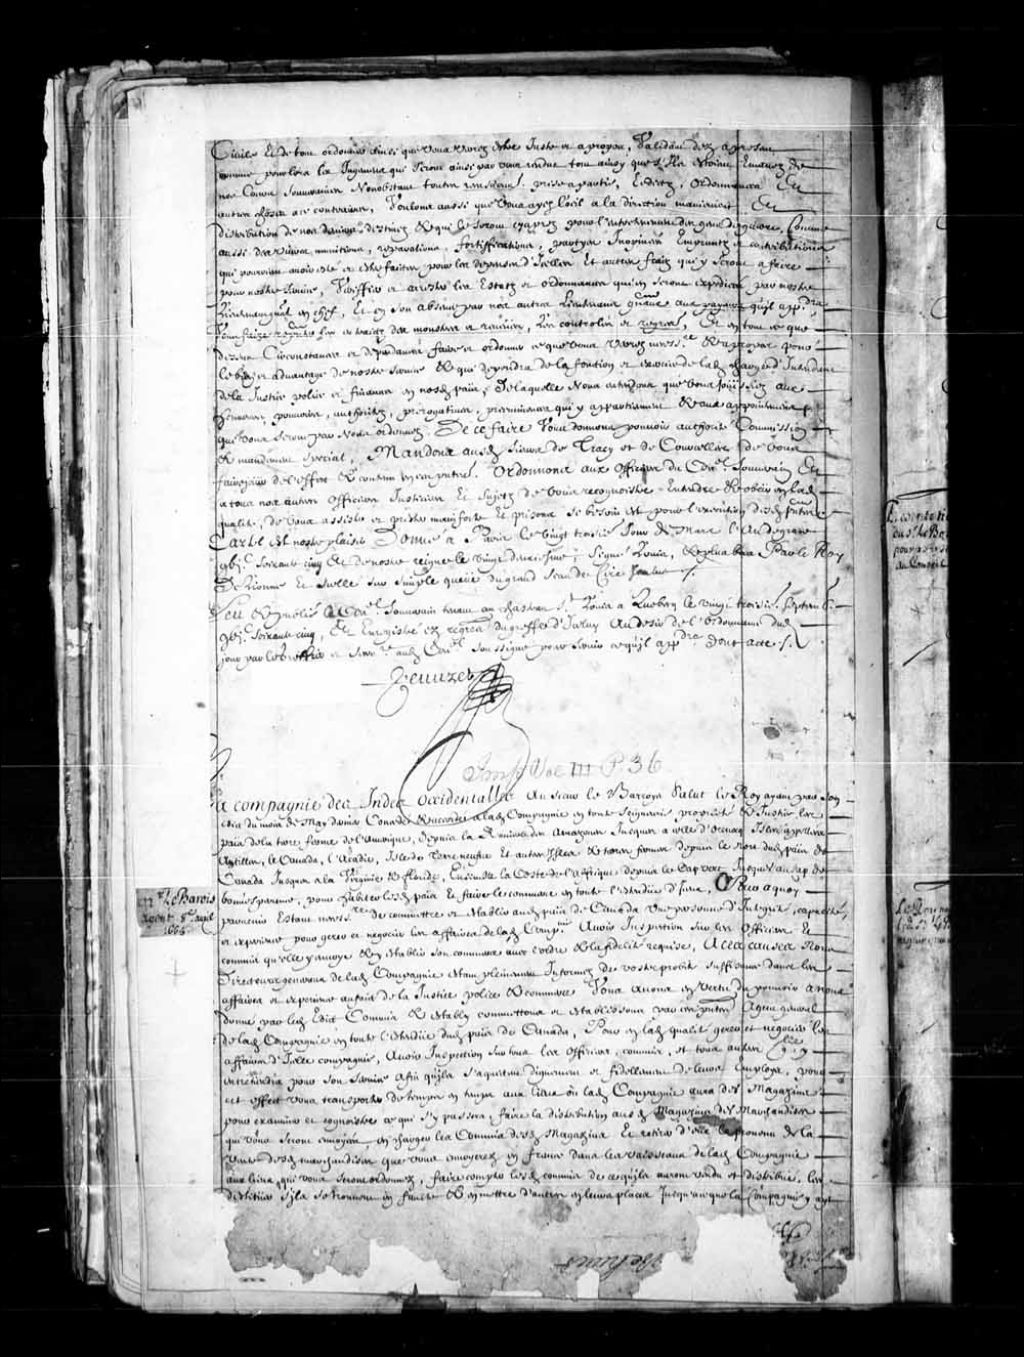 Civile et de tout ordonner ainsi que vous verrez estre Juste et apropos, Validant dez apresent
comme pour lors les Jugemens qui seront ainsi par vous rendus tout ainsy que s'ils estoient Emanez de
nos Cours Souveraines Nonobstant toutes recusations, prises a parties, Edictz, ordonnances Et
autres choses a ce contraires, Voulons aussi que vous ayez l'oeil a la direction maniement Et
distribution de nos deniers destinez et qui le seront cy apres pour l'entretenement des gens de guerre, Comme
aussi des vivres munitions, reparations, fortiffications, parties Inopinées Emprunts et contributions
qui pourroient avoir esté et estre faites pour les depenses d'Icelles Et autres fraiz qui y seront a faire
pour nostre service, Veriffier et arrester les Estatz et ordonnances qui en seront expediées par nostre
Lieutenant gnãl en chef, Et en son absence par nos autres Lieutenans gnãux aux payeurs qu'il app.dra
Vous faire representer les extraitz des monstres et reveües, Les controller et registrer, Et en tout ce que
dessus Circonstances et dependances faire et ordonner ce que vous verrez necess.re et a propos pour
le bien et advantage de nostre service et qui dependra de la fonction et exercice de lad. charge d'Intendant
de la Justice police et finances en nostred. païs, De laquelle Nous entendons que vous joüissiez aux
honneurs, pouvoirs, authoritez, prerogatives, preeminences qui y appartiennent et aux appointemens
qui vous seront par Nous ordonnez. De ce faire Vous donnons pouvoir authorité Commission
et mandement special, Mandons ausd. sieurs de Tracy et de Courcelles de vous
faire jouir de l'effect et contenu en ces pntes. Ordonnons aux officiers du Con.el Souverain Et
a tous nos autres officiers Justiciers Et Sujetz de vous recognoistre Entendre et obeir en lad.
qualité, de vous assister et prester mainforte Et prisons si besoin est pour l'execution desd. pntes
Car tel est nostre plaisir Donné a Paris le vingt troisie Jour de Mars l'an de grace
gbi.c soixante cinq Et de nostre regne le vingt deuxiesme, Signé Louis, Et plus bas Par le Roy
De Lionne Et scellé sur simple queüe du grand sceau de Cire jaulne /.
Leu et publié le Con.el Souverain tenant au chasteau St Louis a Quebecq le vingt troisie Septembre
gbi.c soixante cinq, Et Enregistré ez regres du greffe d'Iceluy Au desir de l'ordonnance dud.
jour par les greffier et secr.re aud. Con.el soussigné pour servir ce qu'il app.dra dont acte /.
Peuvret
Imp Vol III P 36
La compagnie des Indes Occidentalles Au sieur le Barroys Salut le Roy ayant par son
Edict du mois de May dernier Concedé et accordé a lad. Compagnie en toute Seigneurie propriété et Justice les
païs de la terre ferme de l'Amerique, depuis la Riviere des Amazones Jusques a celle d'Orenoq Isles appellées
Antilles, le Canada, l'Acadie, Isles de Terre neufve Et autres Isles et terre ferme depuis le Nort dud. païs de
Canada Jusques a la Virginie et floride, Ensemble la Coste de l'affrique depuis le Cap vert Jusques au cap de
bonne esperance, pour habiter lesd. païs Et faire le commerce en toute l'estendue d'Iceux, A quoy
pourvenir Estant necess.re de commettre et establir aud. païs de Canada Une personne d'Integrité, capacité,
et experience pour gerer et negocier les affaires de lad. Compie Avoir Inspection sur les officiers Et
commis qu'elle y envoye et y establir son commerce avec l'ordre et la fidelité requise, A ces causes Nous
Directeurs generaux de lad. Compagnie estans pleinement Informez de vostre probité suffisance dans les
affaires et experience au fait de la Justice police et commerce Vous avons en vertu du pouvoir a nous
donné par led. Edict Commis et estably commettons et establissons par ces pntes Agent general
de lad. Compagnie en toute l'estendüe dud. païs de Canada, Pour en lad. qualité gerer et negocier les
affaires d'Icelle compagnie, Avoir Inspection sur tous les officiers, commis, et tous autres qu'elle y
entretiendra pour son service Afin qu'ils s'acquittent dignement et fidellement de leurs Employs, pour
cet effect vous transporter de temps en temps aux lieux où lad. Compagnie aura des Magazins
pour examiner et cognoistre ce qui s'y passera, faire la distribution ausd. Magazins des Marchandises
qui vous seront envoyées en charger les Commis desd. Magazins Et retirer d'eux le provenu de la
vente desd. marchandises que vous envoyerez en france dans les vaisseaux de lad. Compagnie
aux lieux qui vous seront ordonnez, faire compter lesd. commis de ce qu'ils auront vendu et distribué, les
destituer s'ils se trouvent en faute et en mettre d'autres en leurs places Jusqu'a ce que la Compagnie y ayt
Mr Le Barrois
Agent 8e avril
1665